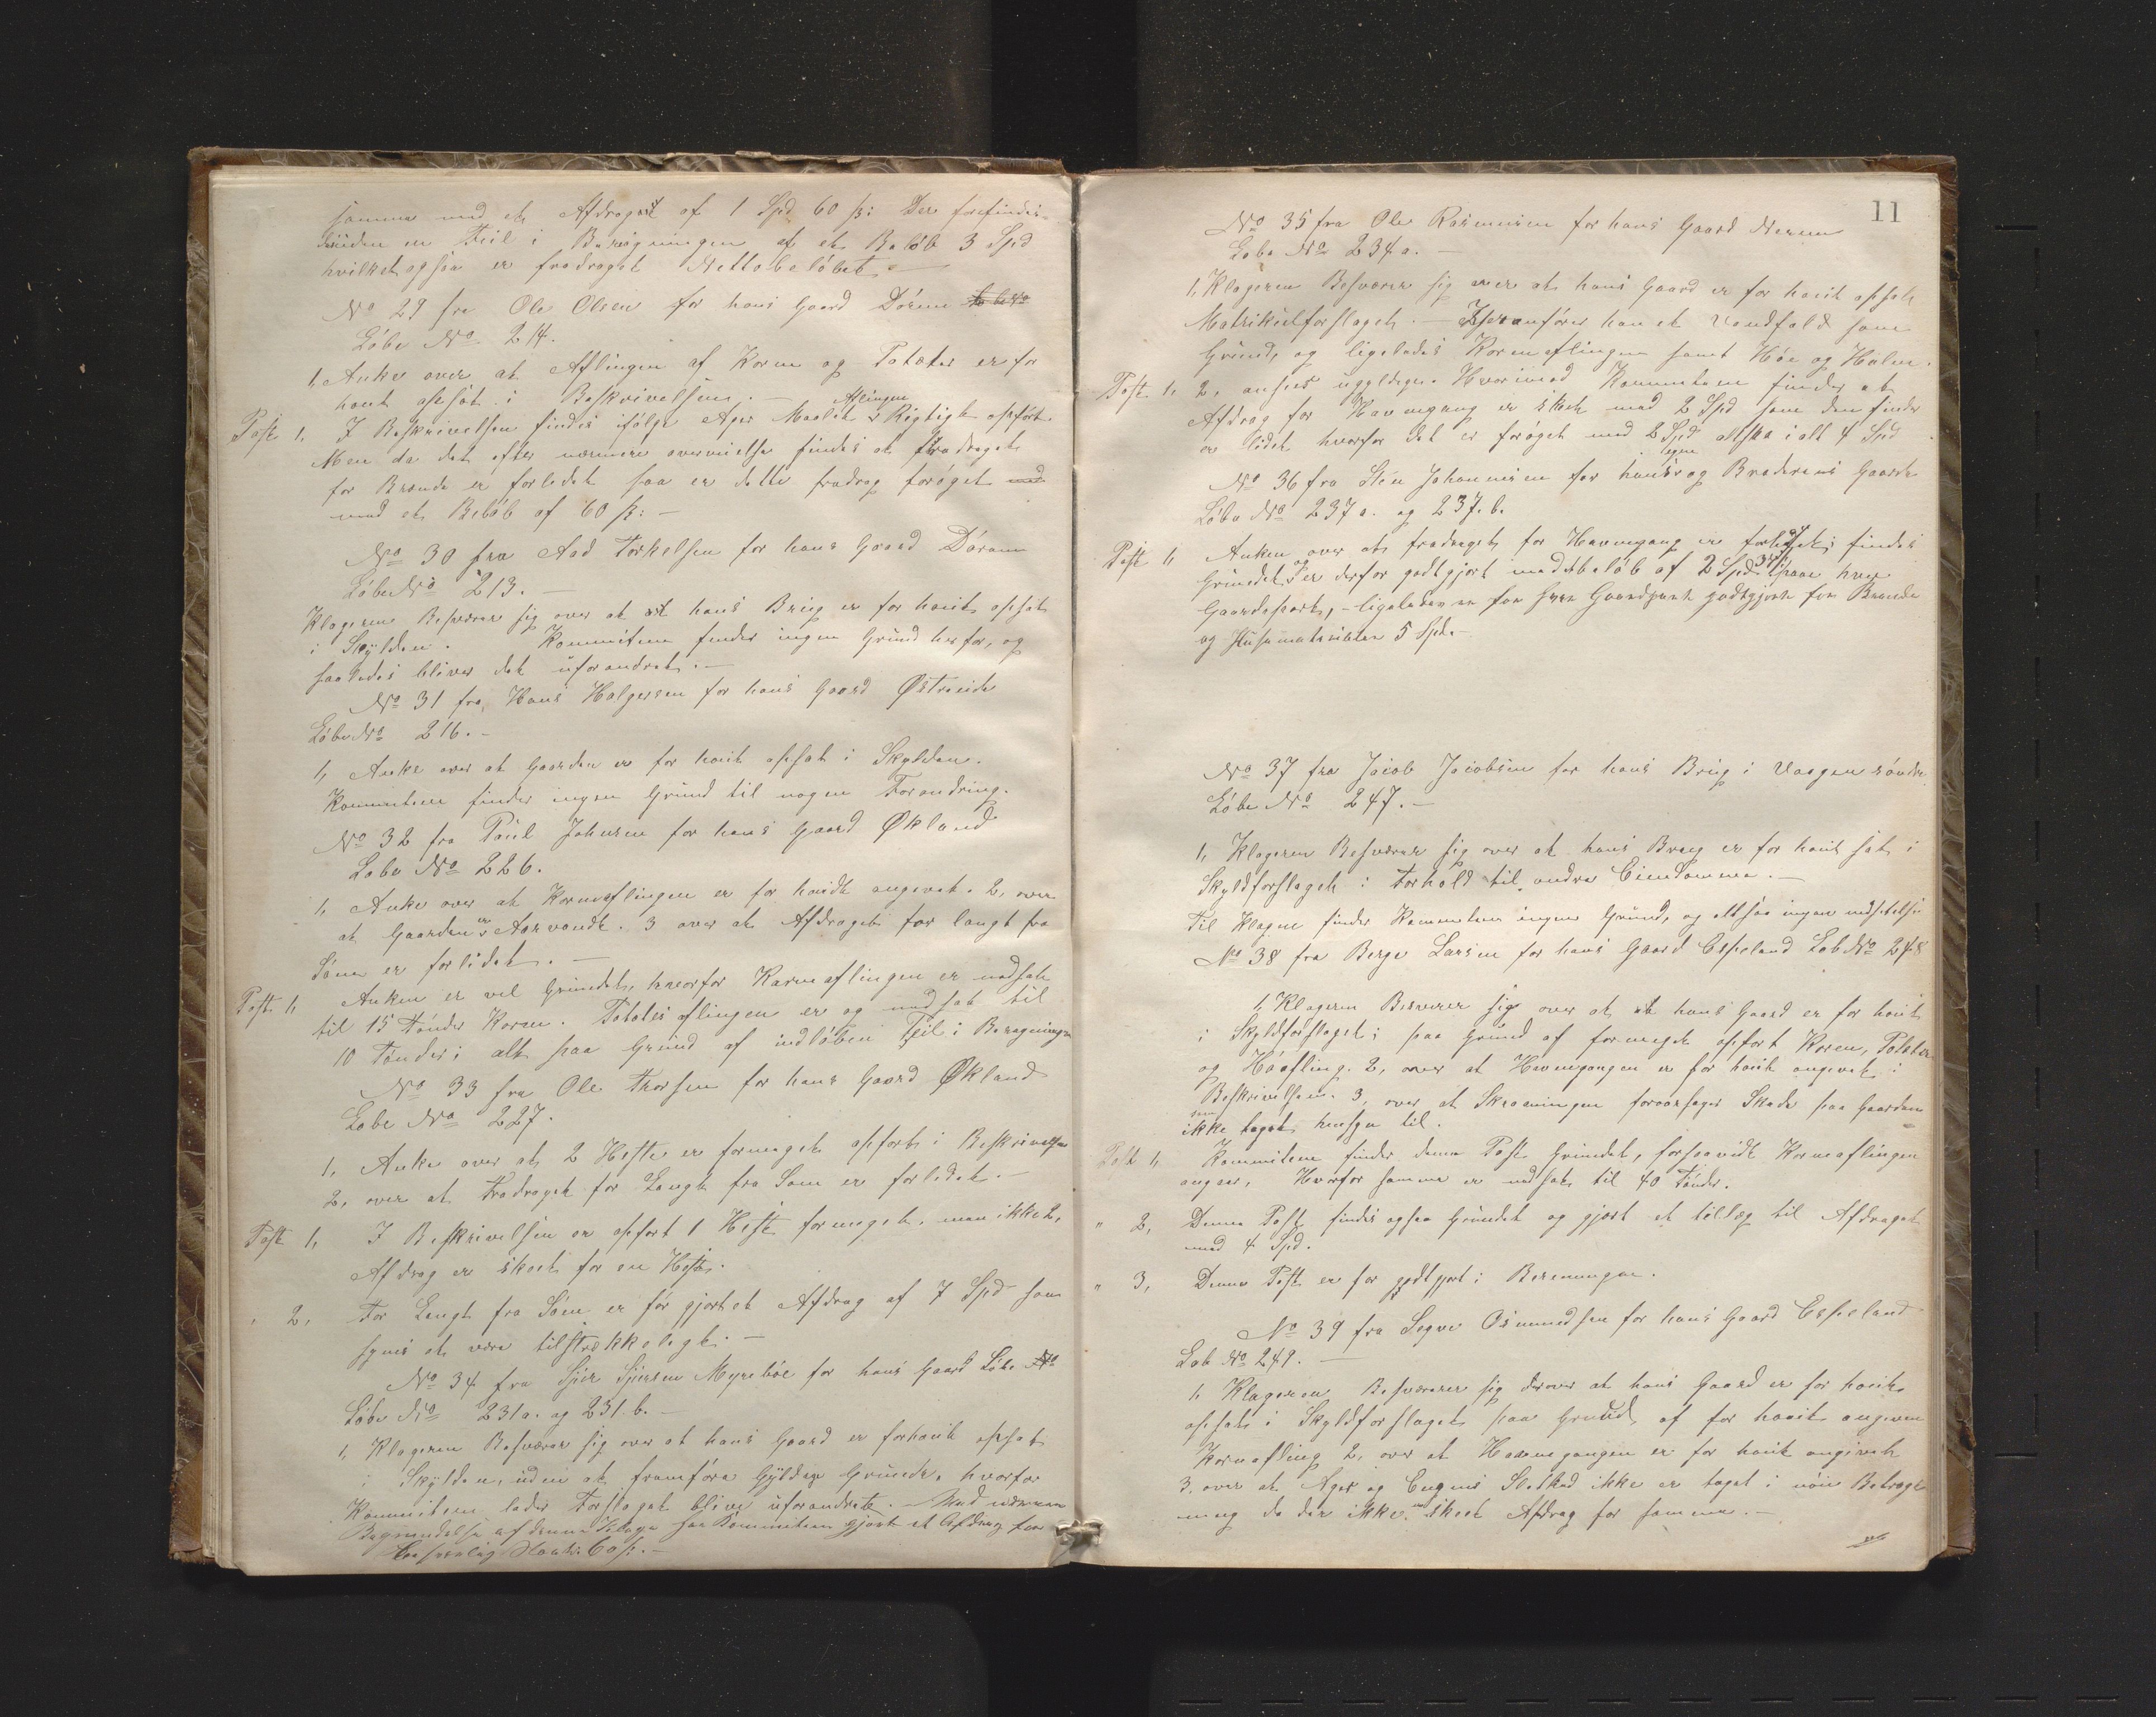 samme med et Afdrag af 1 Spd 60 ß: Der forefindes
desuden en Feil i Beregningen af et Beløb 3 Spd
hvilket ogsaa er fradraget Nettobeløbet. —
No 29 fra Ole Olsen for hans Gaard Dörum
Löbe No 214.
1, Anke over at Aflingen af Korn og Potæter er for
høit opsat i Beskrivelsen. —
Post 1, I Beskrivelsen findes ifølge Ager Maalet Aflingen Rigtigt opført
Men da det efter nærmere overveielse findes at fradraget
for Brænde er forlidet saa er dette fradrag forøget
med et Beløb af 60 ß: —
No 30 fra Aad Torkelsen for hans Gaard Döram
Löbe No 213. —
Klageren Besværer sig over at hans Brug er for høit opsat
i Skylden. Kommiteen finder ingen Grund herfor, og
saaledes bliver det uforandret. —
No 31 fra Hans Halgersen for hans Gaard Østreide
Löbe No 216. —
1, Anke over at Gaarden er for høit opsat i Skylden.
Kommiteen finder ingen Grund til nogen Forandring.
No 32 fra Poul Johnsen for hans Gaard Økland
Löbe No 226.
1, Anke over at Kornaflingen er for høidt angivet. 2, over
at Gaarden er Aarvandt. 3 over at Afdraget for langt fra
Søen er forlidet. —
Post 1, Anken er vel Grundet, hvorfor Kornaflingen er nedsat
til 15 Tönder Korn. Potetesaflingen er og nedsat til
10 Tönder i alt paa Grund af indløben Feil i Beregningen
No 33 fra Ole Thorsen for hans Gaard Økland
Löbe No 227.
1, Anke over at 2 Heste er formeget opført i Beskrivelsen
2, over at Fradraget for Langt fra Søen er forlidet. —
Post 1, I Beskrivelsen er opført 1 Hest formeget, men ikke 2,
Afdrag er skeet for en Hest.
" 2, For Langt fra Søen er før gjort et Afdrag af 7 Spd som
synes at være tilstrækkeligt. —
No 34 fra Sjur Sjursen Myrebøe for hans Gaard Löbe No
Löbe No 231a. og 231.b. —
1, Klageren Besværer sig over at hans Gaard er forhøit opsat
i Skylden, uden at fremføre Gyldige Grunde, hvorfor
Kommiteen lader Forslaget blive uforandret. — Ved nærmere
Begrundelse af denne Klage har Kommiteen gjort et Afdrag for
Besværlig 60 ß. —
11
No 35 fra Ole Rasmusen for hans Gaard Nerem
Löbe No 234a. —
1, Klageren Besværer sig over at hans Gaard er for høit opsat
Matrikulforslaget. — Hveranfører han et Vandfald som
Grund, og ligeledes Kornaflingen samt Høe og Halm.
Post 1, 2, ansees ugyldige. Hvorimod Kommiteen finder at
Afdrag for Havnegang er skeet med 2 Spd som den finder
er lidet hvorfor det er forøget med 2 Spd altsaa i alt 4 Spd
No 36 fra Sten Johannesen for hans egen og Broderens Gaarde
Löbe No 237a. og 237.b.
Post 1, Anken over at fradraget for Havnegang er forlidet; findes
Grundet og er derfor godtgjort med et beløb af 2 Spd paa hver
Gaardepart, — ligeledes er for hver Gaardpart godtgjort for Brænde
og Husematerialer 5 Spd. —
No 37 fra Jacob Jacobsen for hans Brug i Vaagen söndre
Löbe No 247. —
1, Klageren Besværer sig over at hans Brug er for høit sat i
Skyldforslaget i Forhold til andre Eiendomme. —
Til Klagen finder Kommiteen ingen Grund, og altsaa ingen nedsettelse
No 38 fra Berge Larsen for hans Gaard Espeland Løb No 248
1, Klageren Besverer sig over at hans Gaard er for høit
i Skyldforslaget; paa Grund af formeget opført Korn, Poteter
og Höafling. 2, over at Havnegangen er for høit angivet i
Beskrivelsen. 3, over at Skraaningen foraarsager Skade paa Gaarden
ikke taget hensyn til.
Post 1, Kommiteen finder denne Post Grundet, forsaavidt Kornaflingen
angaar, Hvorfor samme er nedsat til 40 Tönder.
" 2, Denne Post findes ogsaa Grundet og gjort et tillæg til Afdraget
med 4 Spd.
" 3, Denne Post er før godtgjort i Beregningen.
No 39 fra Segve Osmundsen for hans Gaard Espeland
Løb No 249. —
1, Klageren Besværer sig derover at hans Gaard er for høit
opsat i Skyldforslaget paa Grund af for høit angiven
Kornafling 2, over at Havnegangen er for høit angivet
3, over at Ager og Engens Sletthed ikke er taget i nøie Betragt
ning da der ikke er skeet Afdrag for samme. —